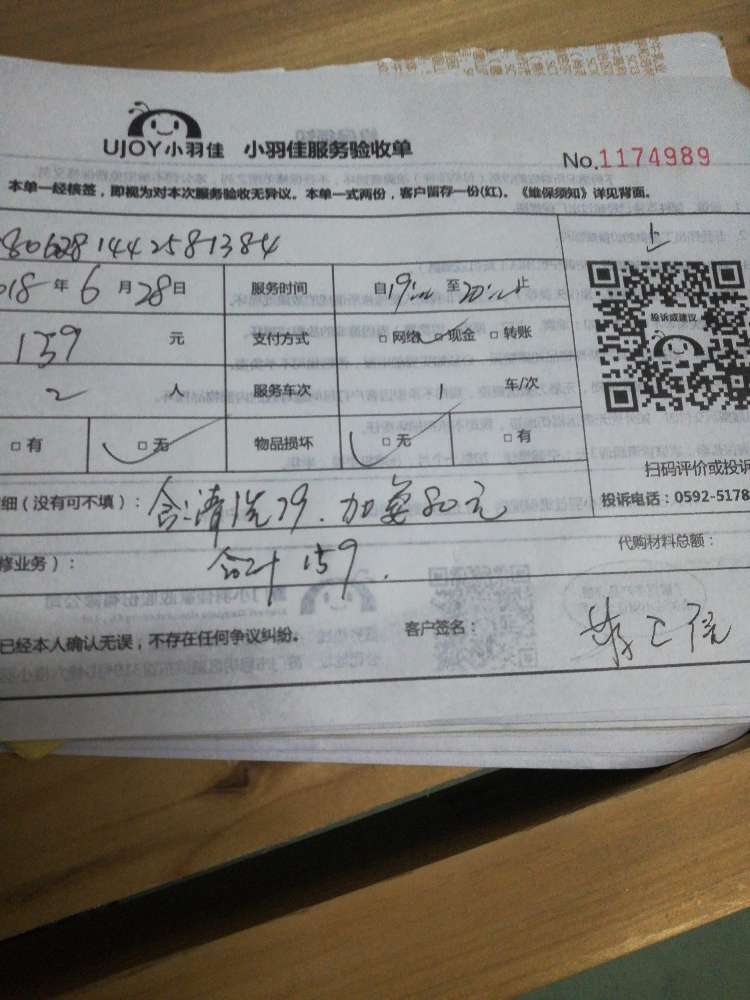 UJOY小羽佳 小羽佳服务验收单
No.1174989
本单一经核签，即视为对本次服务验收无异议。本单一式两份，客户留存一份(红)。《维保须知》详见背面。
806281442581384
018年6月28日 服务时间 自19:00至20:00止
159元 支付方式 □网络 □现金 □转账
2人 服务车次 1车/次
□有 □无 物品损坏 □无 □有
投诉或建议
扫码评价或投诉
投诉电话：0592-5178
细(没有可不填)：含：清洗79.加氨80元
修业务)： 合计159. 代购材料总额：
已经本人确认无误，不存在任何争议纠纷。 客户签名：